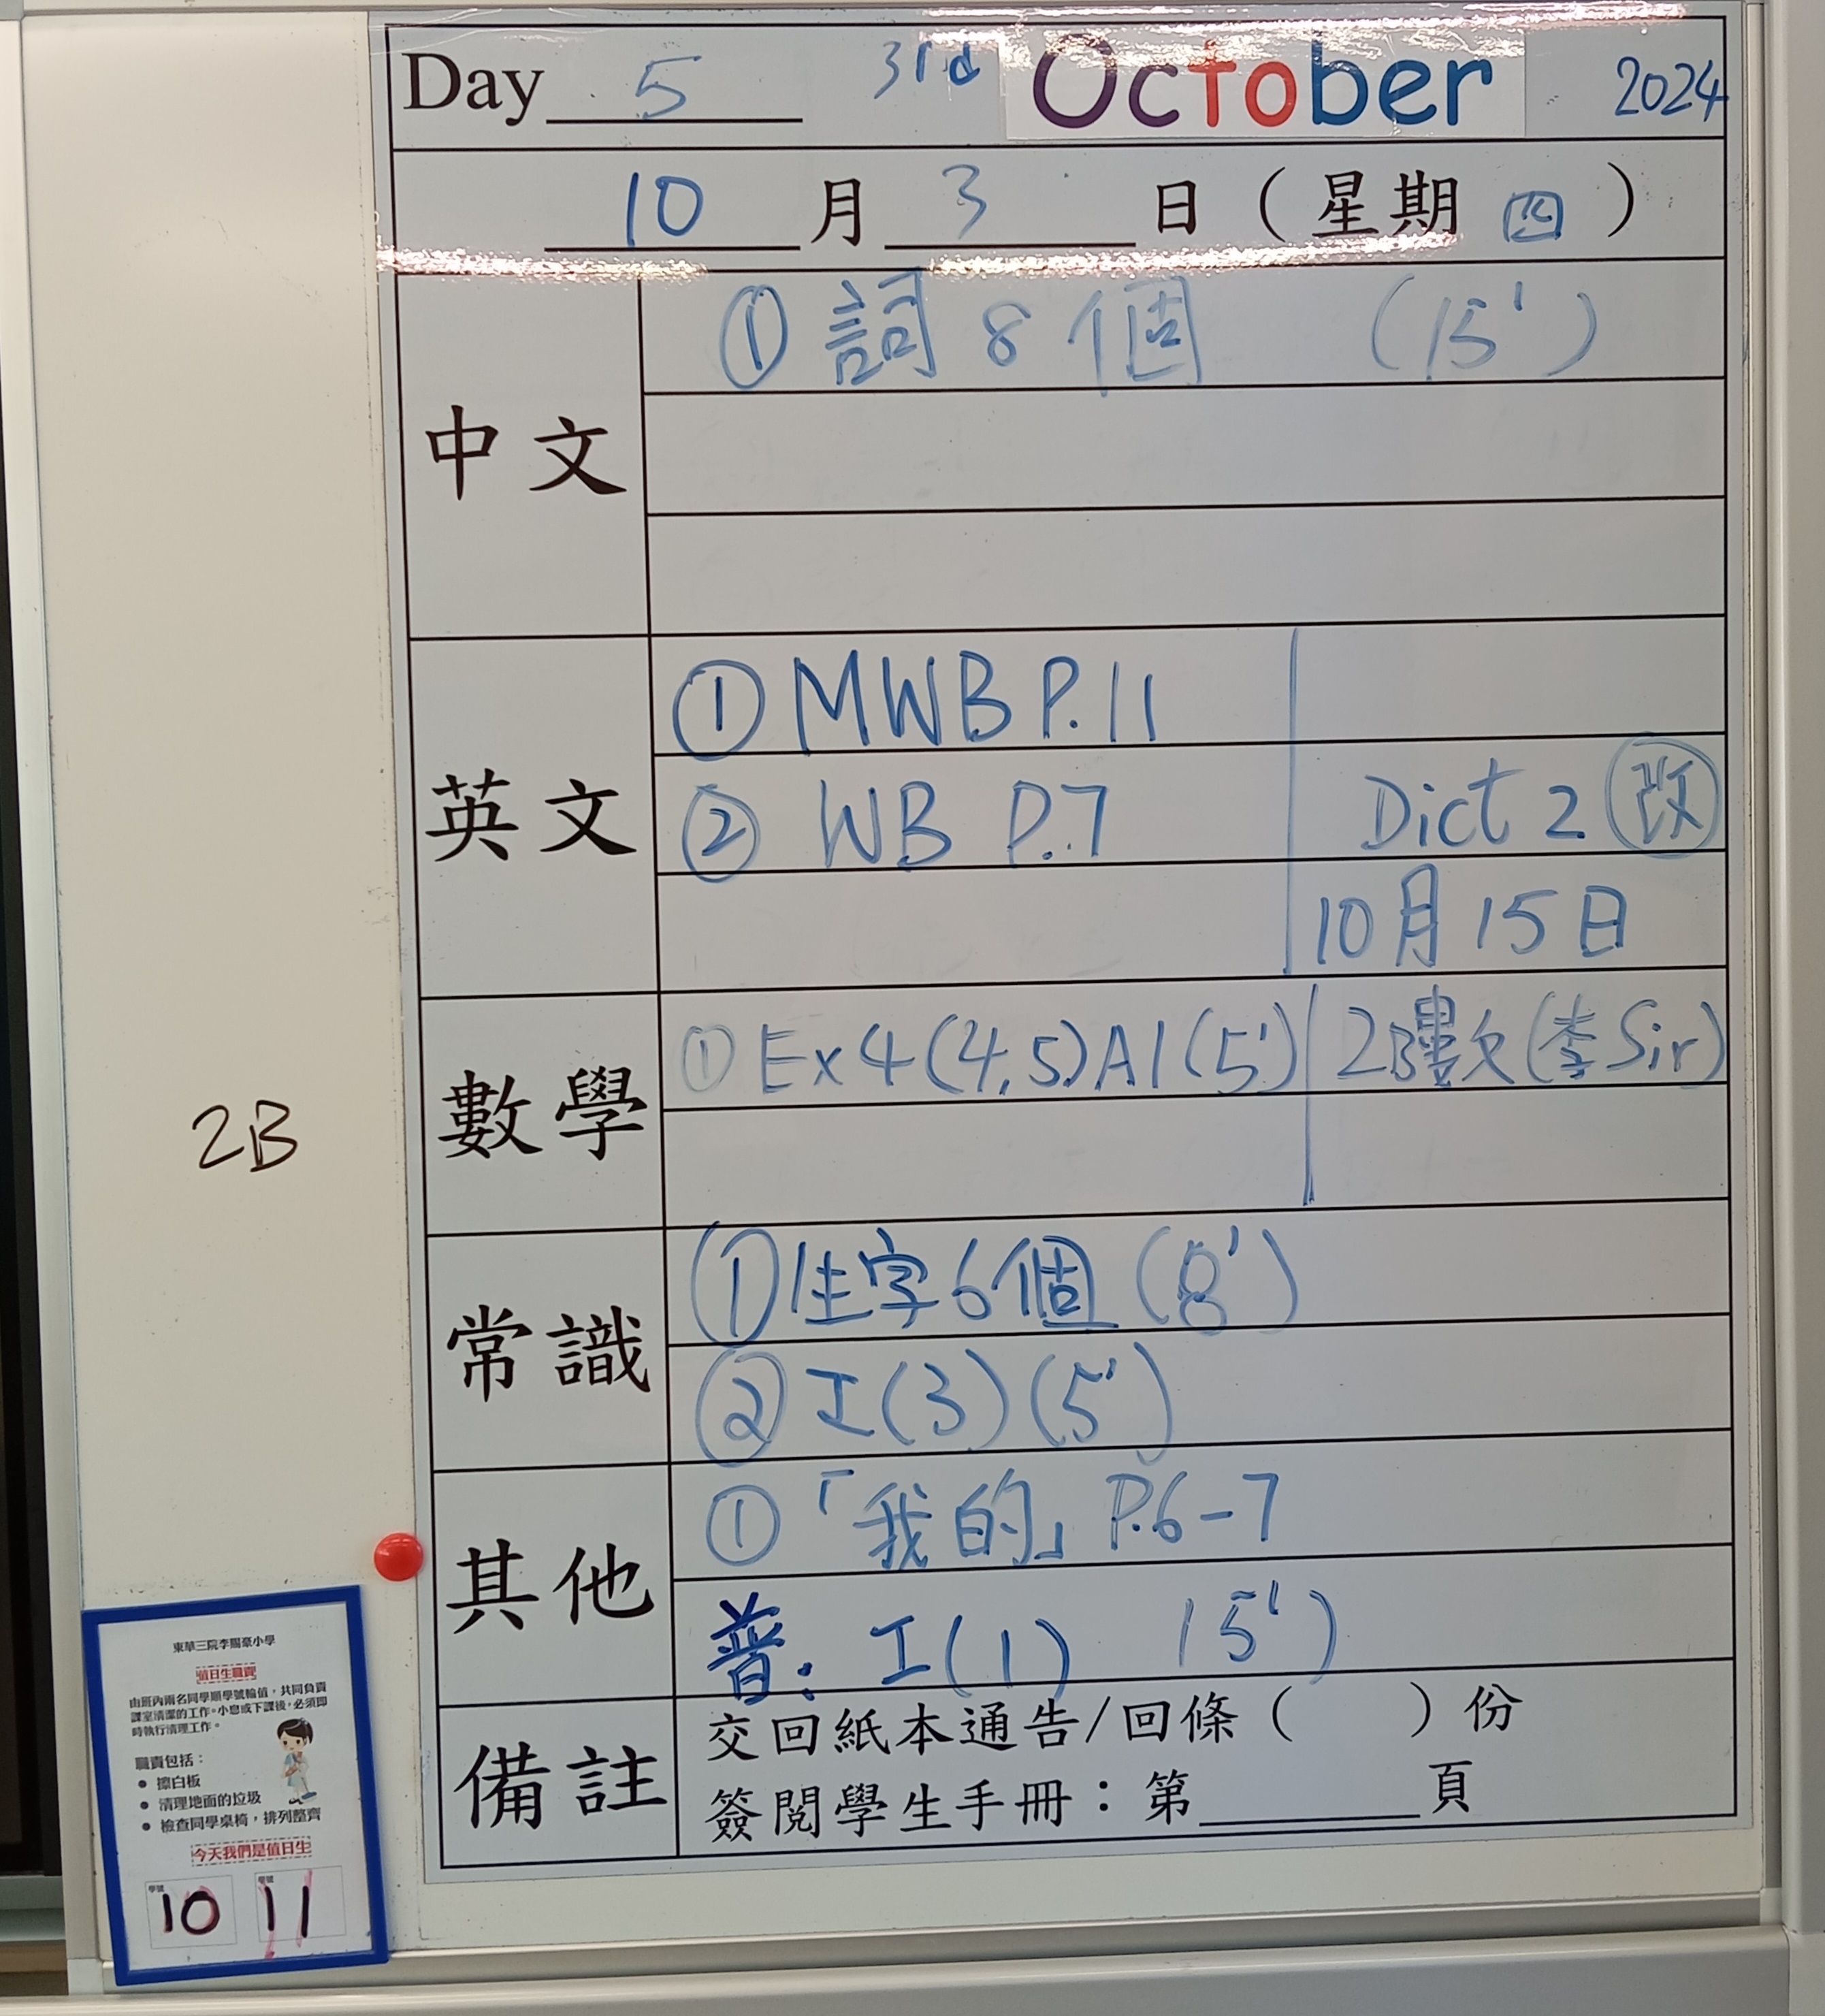 Day 5 3rd October 2024
10 月 3 日 ( 星期 四 )
中文
① 詞 8 個 (15')
英文
① MWB P.11
② WB P.7 Dict 2 改
10月15日
數學
① Ex 4 (4,5) A1 (5') 2B數欠 (李 Sir)
2B
常識
① 生字 6 個 (8')
② 工(3) (5')
其他
① 「我的」 P.6-7
普: 工(1) 15')
備註
交回紙本通告/回條 ( ) 份
簽閱學生手冊:第 頁
東華三院李賜豪小學
值日生職責
由班內兩名同學順學號輪值,共同負責
課室清潔的工作。小息或下課後,必須即
時執行清理工作。
職責包括:
● 擦白板
● 清理地面的垃圾
● 檢查同學桌椅,排列整齊
今天我們是值日生
學號 學號
10 11